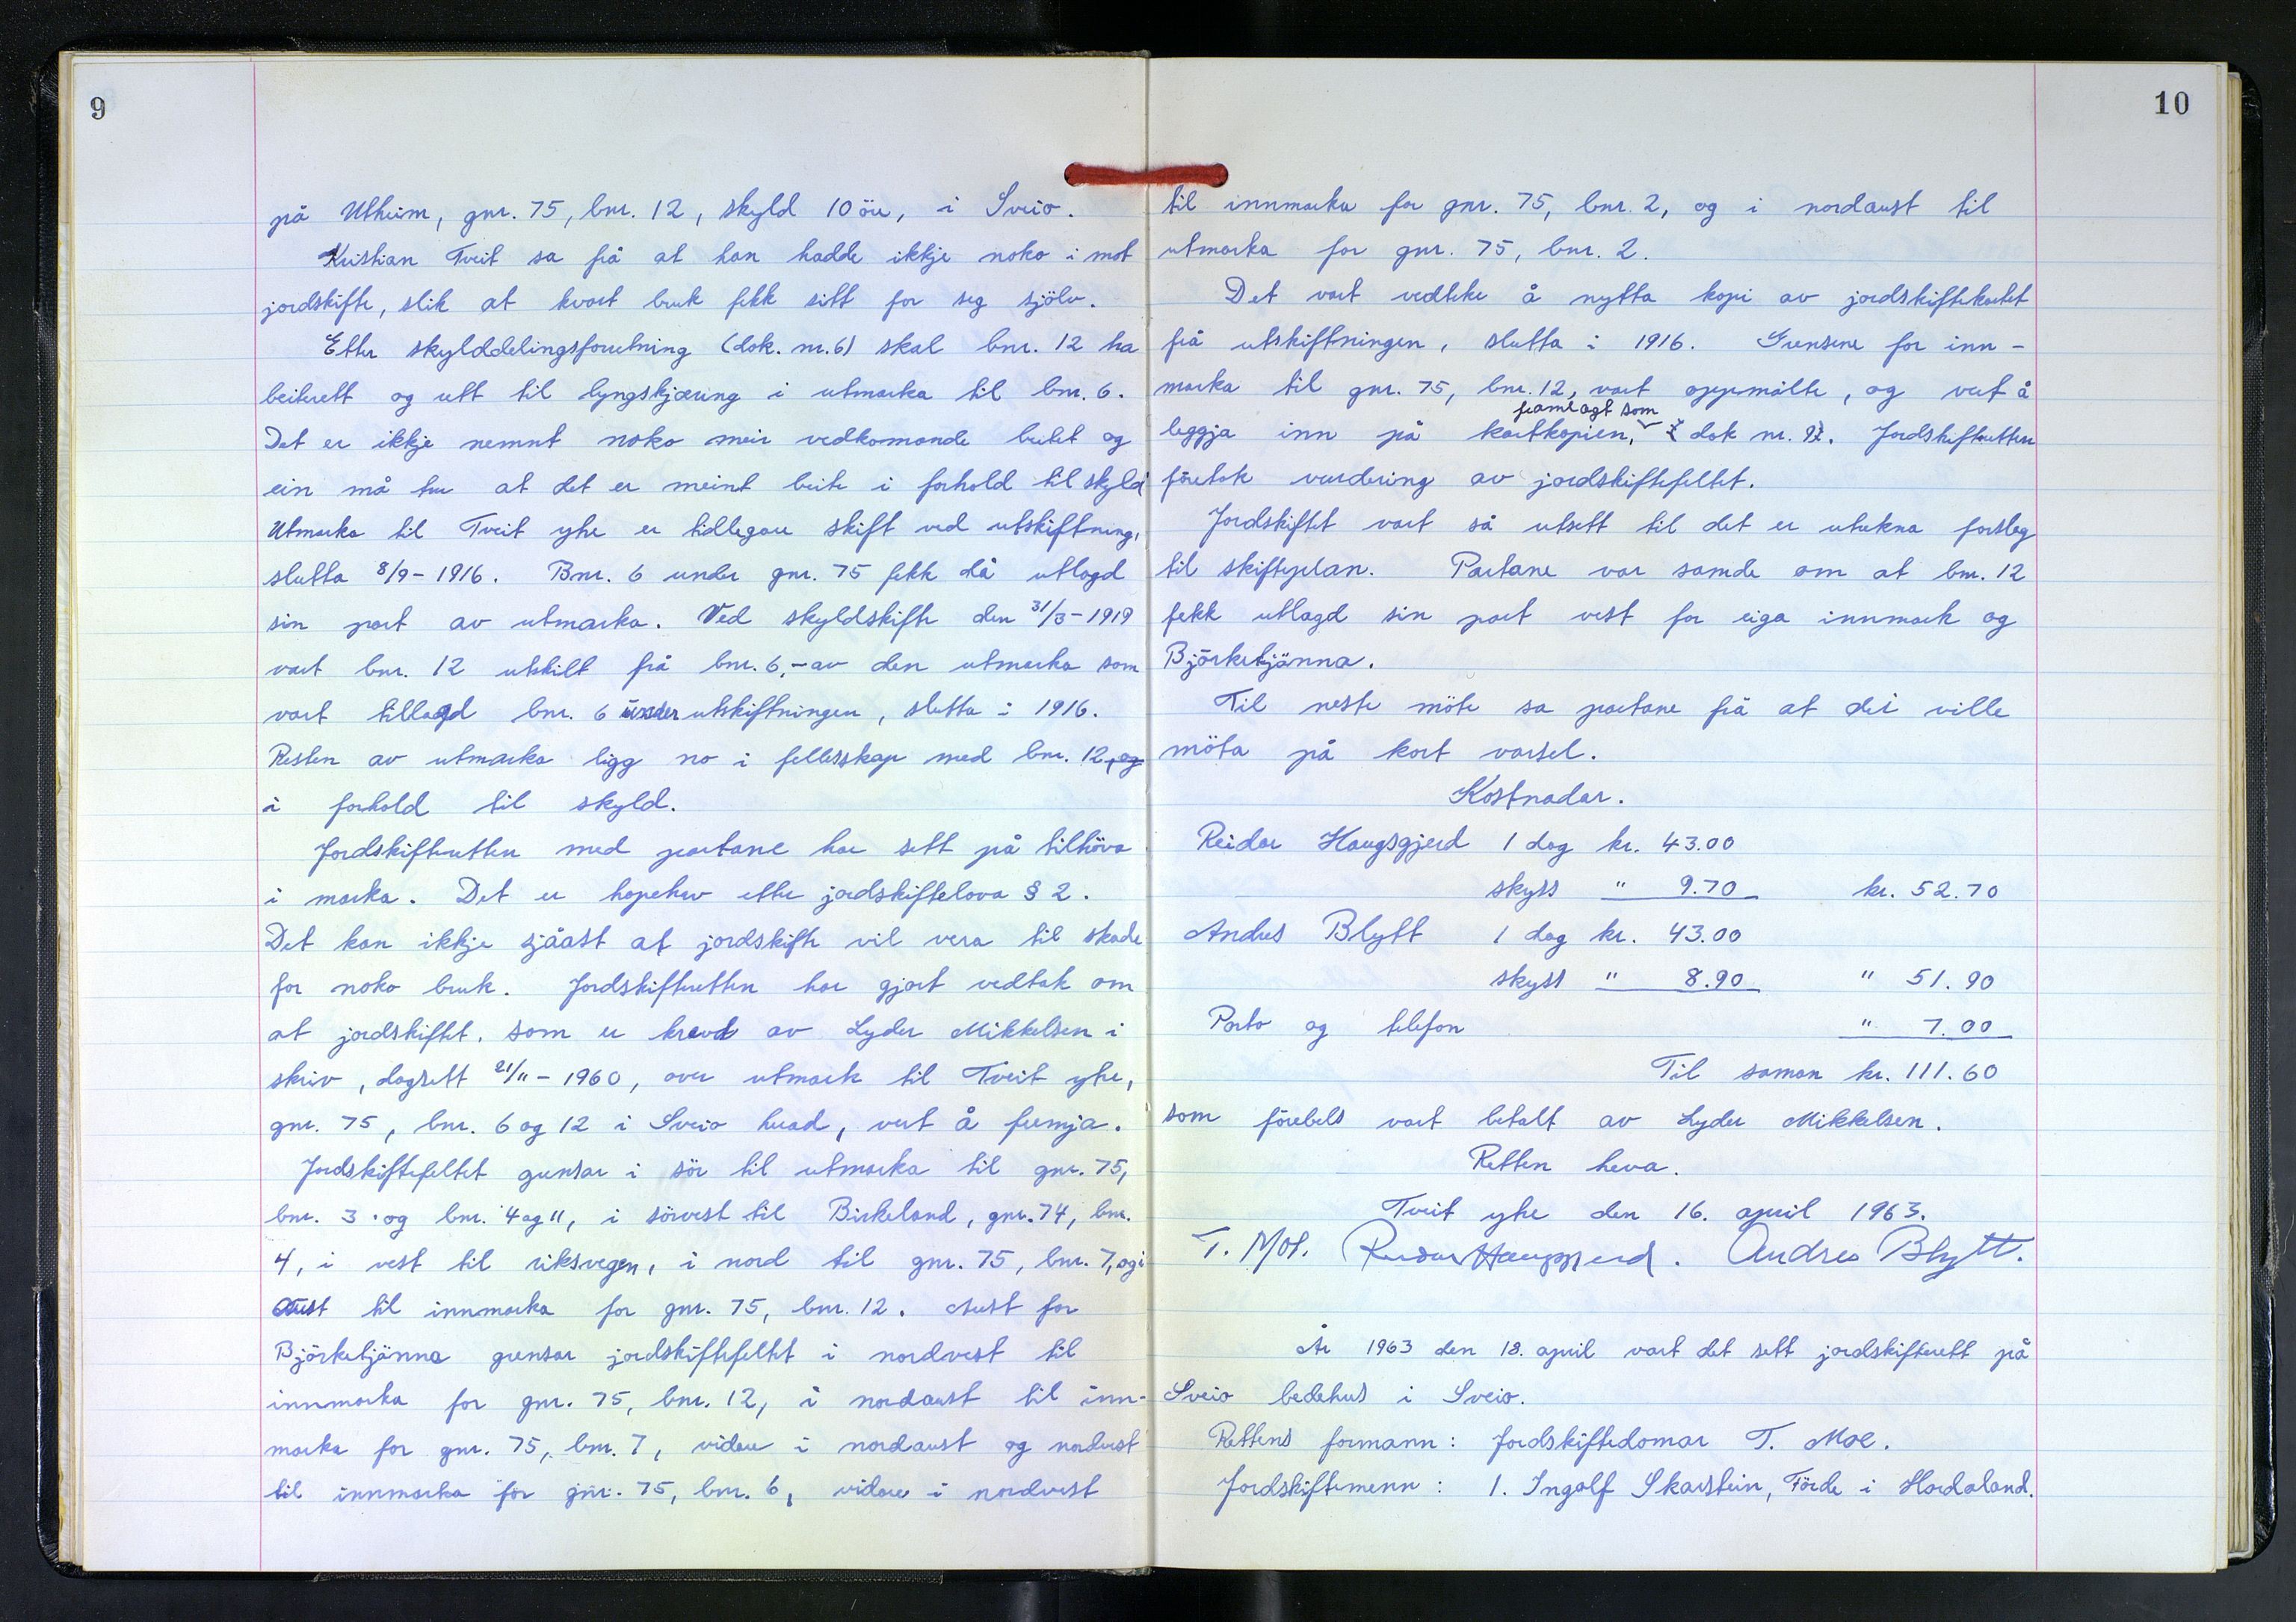 9
på Utheim, gnr. 75, bnr. 12, skyld 10 öre, i Sveio.
Kristian Tveit sa frå at han hadde ikkje noko i mot
jordskifte, slik at kvart bruk fekk sitt for seg sjölv.
Etter skylddelingsforretning (dok. nr. 6) skal bnr. 12 ha
beiterett og rett til lyngskjæring i utmarka til bnr. 6.
Det er ikkje nemnt noko meir vedkomande beitet og
ein må tru at det er meint beite i forhold til skyld
Utmarka til Tveit ytre er tidlegare skift ved utskiftning,
slutta 8/9-1916. Bnr. 6 under gnr. 75 fekk då utlagd
sin part av utmarka. Ved skyldskifte den 31/3-1919
vart bnr. 12 utskilt frå bnr. 6,- av den utmarka som
vart tillagd bnr. 6 under utskiftningen, slutta i 1916.
Resten av utmarka ligg no i fellesskap med bnr. 12, og
i forhold til skyld.
Jordskifteretten med partane har sett på tilhöva
i marka. Det er hopehav etter jordskiftelova § 2.
Det kan ikkje sjåast at jordskifte vil vera til skade
for noko bruk. Jordskifteretten har gjort vedtak om
at jordskiftet, som er kravd av Lyder Mikkelsen i
skriv, dagsett 21/11-1960, over utmark til Tveit ytre,
gnr. 75, bnr. 6 og 12 i Sveio herad, vert å fremja.
Jordskiftefeltet grensar i sör til utmarka til gnr. 75,
bnr. 3 og bnr. 4 og 11, i sörvest til Birkeland, gnr. 74, bnr.
4, i vest til riksvegen, i nord til gnr. 75, bnr. 7, og i
aust til innmarka for gnr. 75, bnr. 12. Aust for
Björketjänna grensar jordskiftefeltet i nordvest til
innmarka for gnr. 75, bnr. 12, i nordaust til inn-
marka for gnr. 75, bnr. 7, vidare i nordaust og nordvest
til innmarka for gnr. 75, bnr. 6, vidare i nordvest
10
til innmarka for gnr. 75, bnr. 2, og i nordaust til
utmarka for gnr. 75, bnr. 2.
Det vart vedteke å nytta kopi av jordskiftekartet
frå utskiftningen, slutta i 1916. Grensene for inn-
marka til gnr. 75, bnr. 12, vart oppmålte, og vert å
framlagt som
leggja inn på kartkopien, dok nr. 9. Jordskifteretten
företok vurdering av jordskiftefeltet.
Jordskiftet vart så utsett til det er utrekna forslag
til skifteplan. Partane var samde om at bnr. 12
fekk utlagd sin part vest for eiga innmark og
Björketjänna.
Til neste möte sa partane frå at dei ville
möta på kort varsel.
Kostnadar.
Reidar Haugsgjerd 1 dag kr. 43.00
skyss " 9.70 kr. 52.70
Andres Blytt 1 dag kr. 43.00
skyss " 8.90 " 51.90
Porto og telefon " 7.00
Til saman kr. 111.60
som förebels vart betalt av Lyder Mikkelsen.
Retten heva.
Tveit ytre den 16. april 1963.
T. Moe. Reidar Haugsgjerd. Andres Blytt.
År 1963 den 18. april vart det sett jordskifterett på
Sveio bedehus i Sveio.
Rettens formann: Jordskiftedomar T. Moe.
Jordskiftemenn: 1. Ingolf Skarstein, Förde i Hordaland.